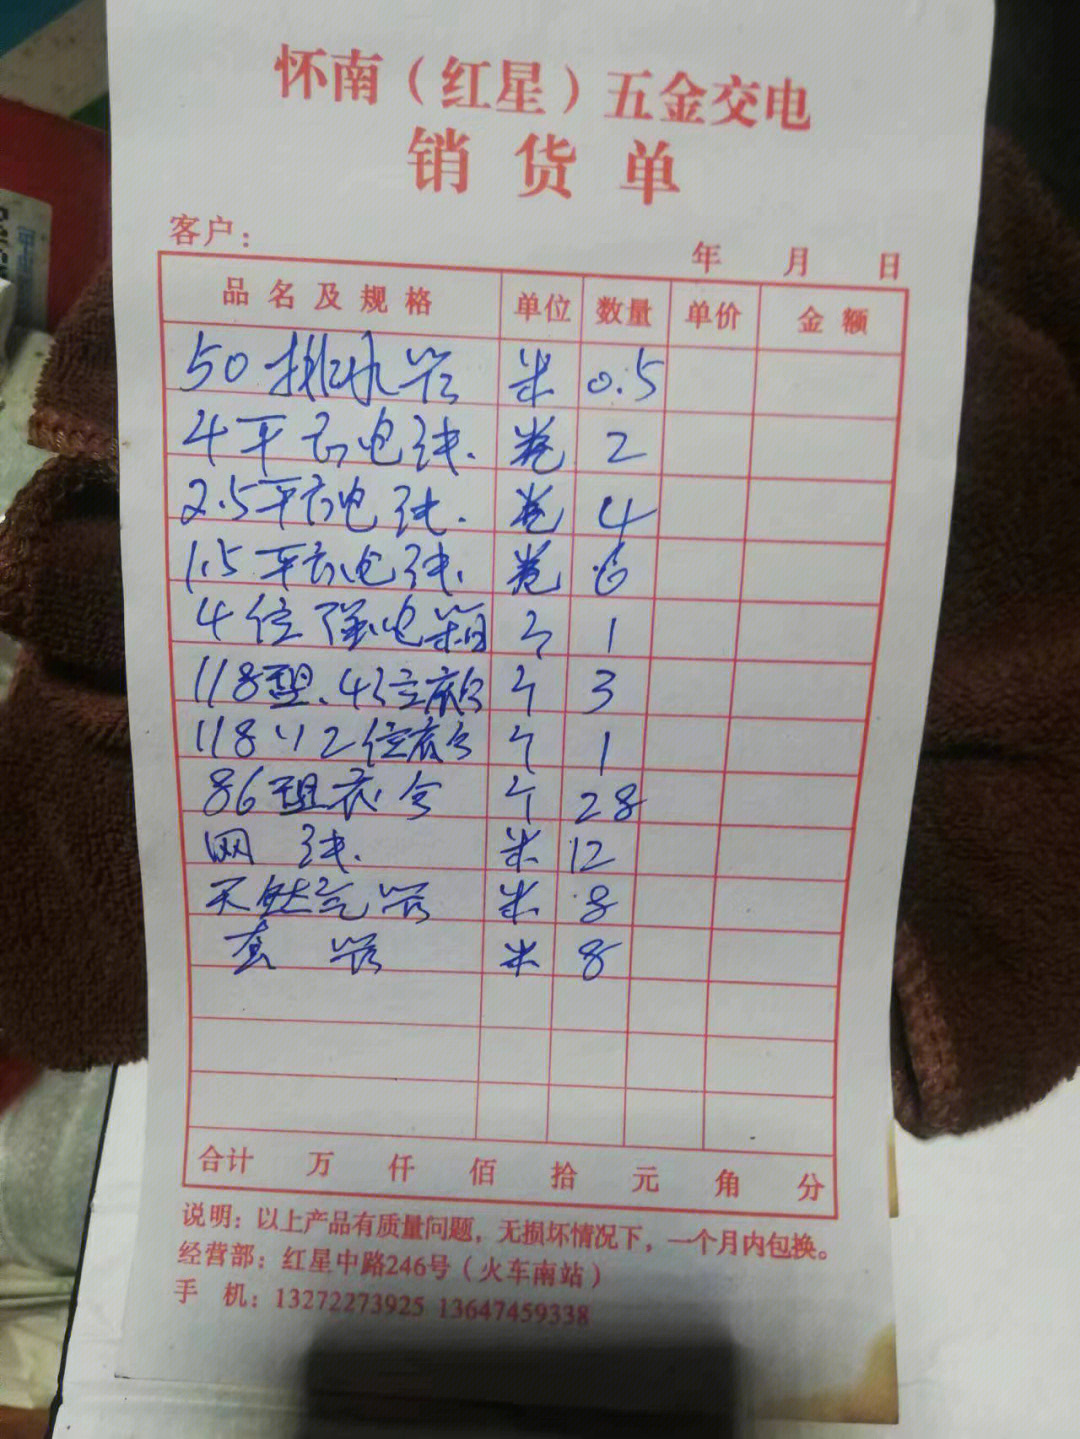 怀南（红星）五金交电
销货单
客户： 年 月 日
品名及规格 单位 数量 单价 金额
50排水管 米 0.5
4平方电线. 卷 2
2.5平方电线. 卷 4
1.5平方电线. 卷 6
4位强电箱 个 1
118型.4位底合 个 3
118〃2位底合 个 1
86型底合 个 28
网线. 米 12
天然气管 米 8
套管 米 8
合计 万 仟 佰 拾 元 角 分
说明：以上产品有质量问题，无损坏情况下，一个月内包换。
经营部：红星中路246号（火车南站）
手 机：13272273925 13647459338